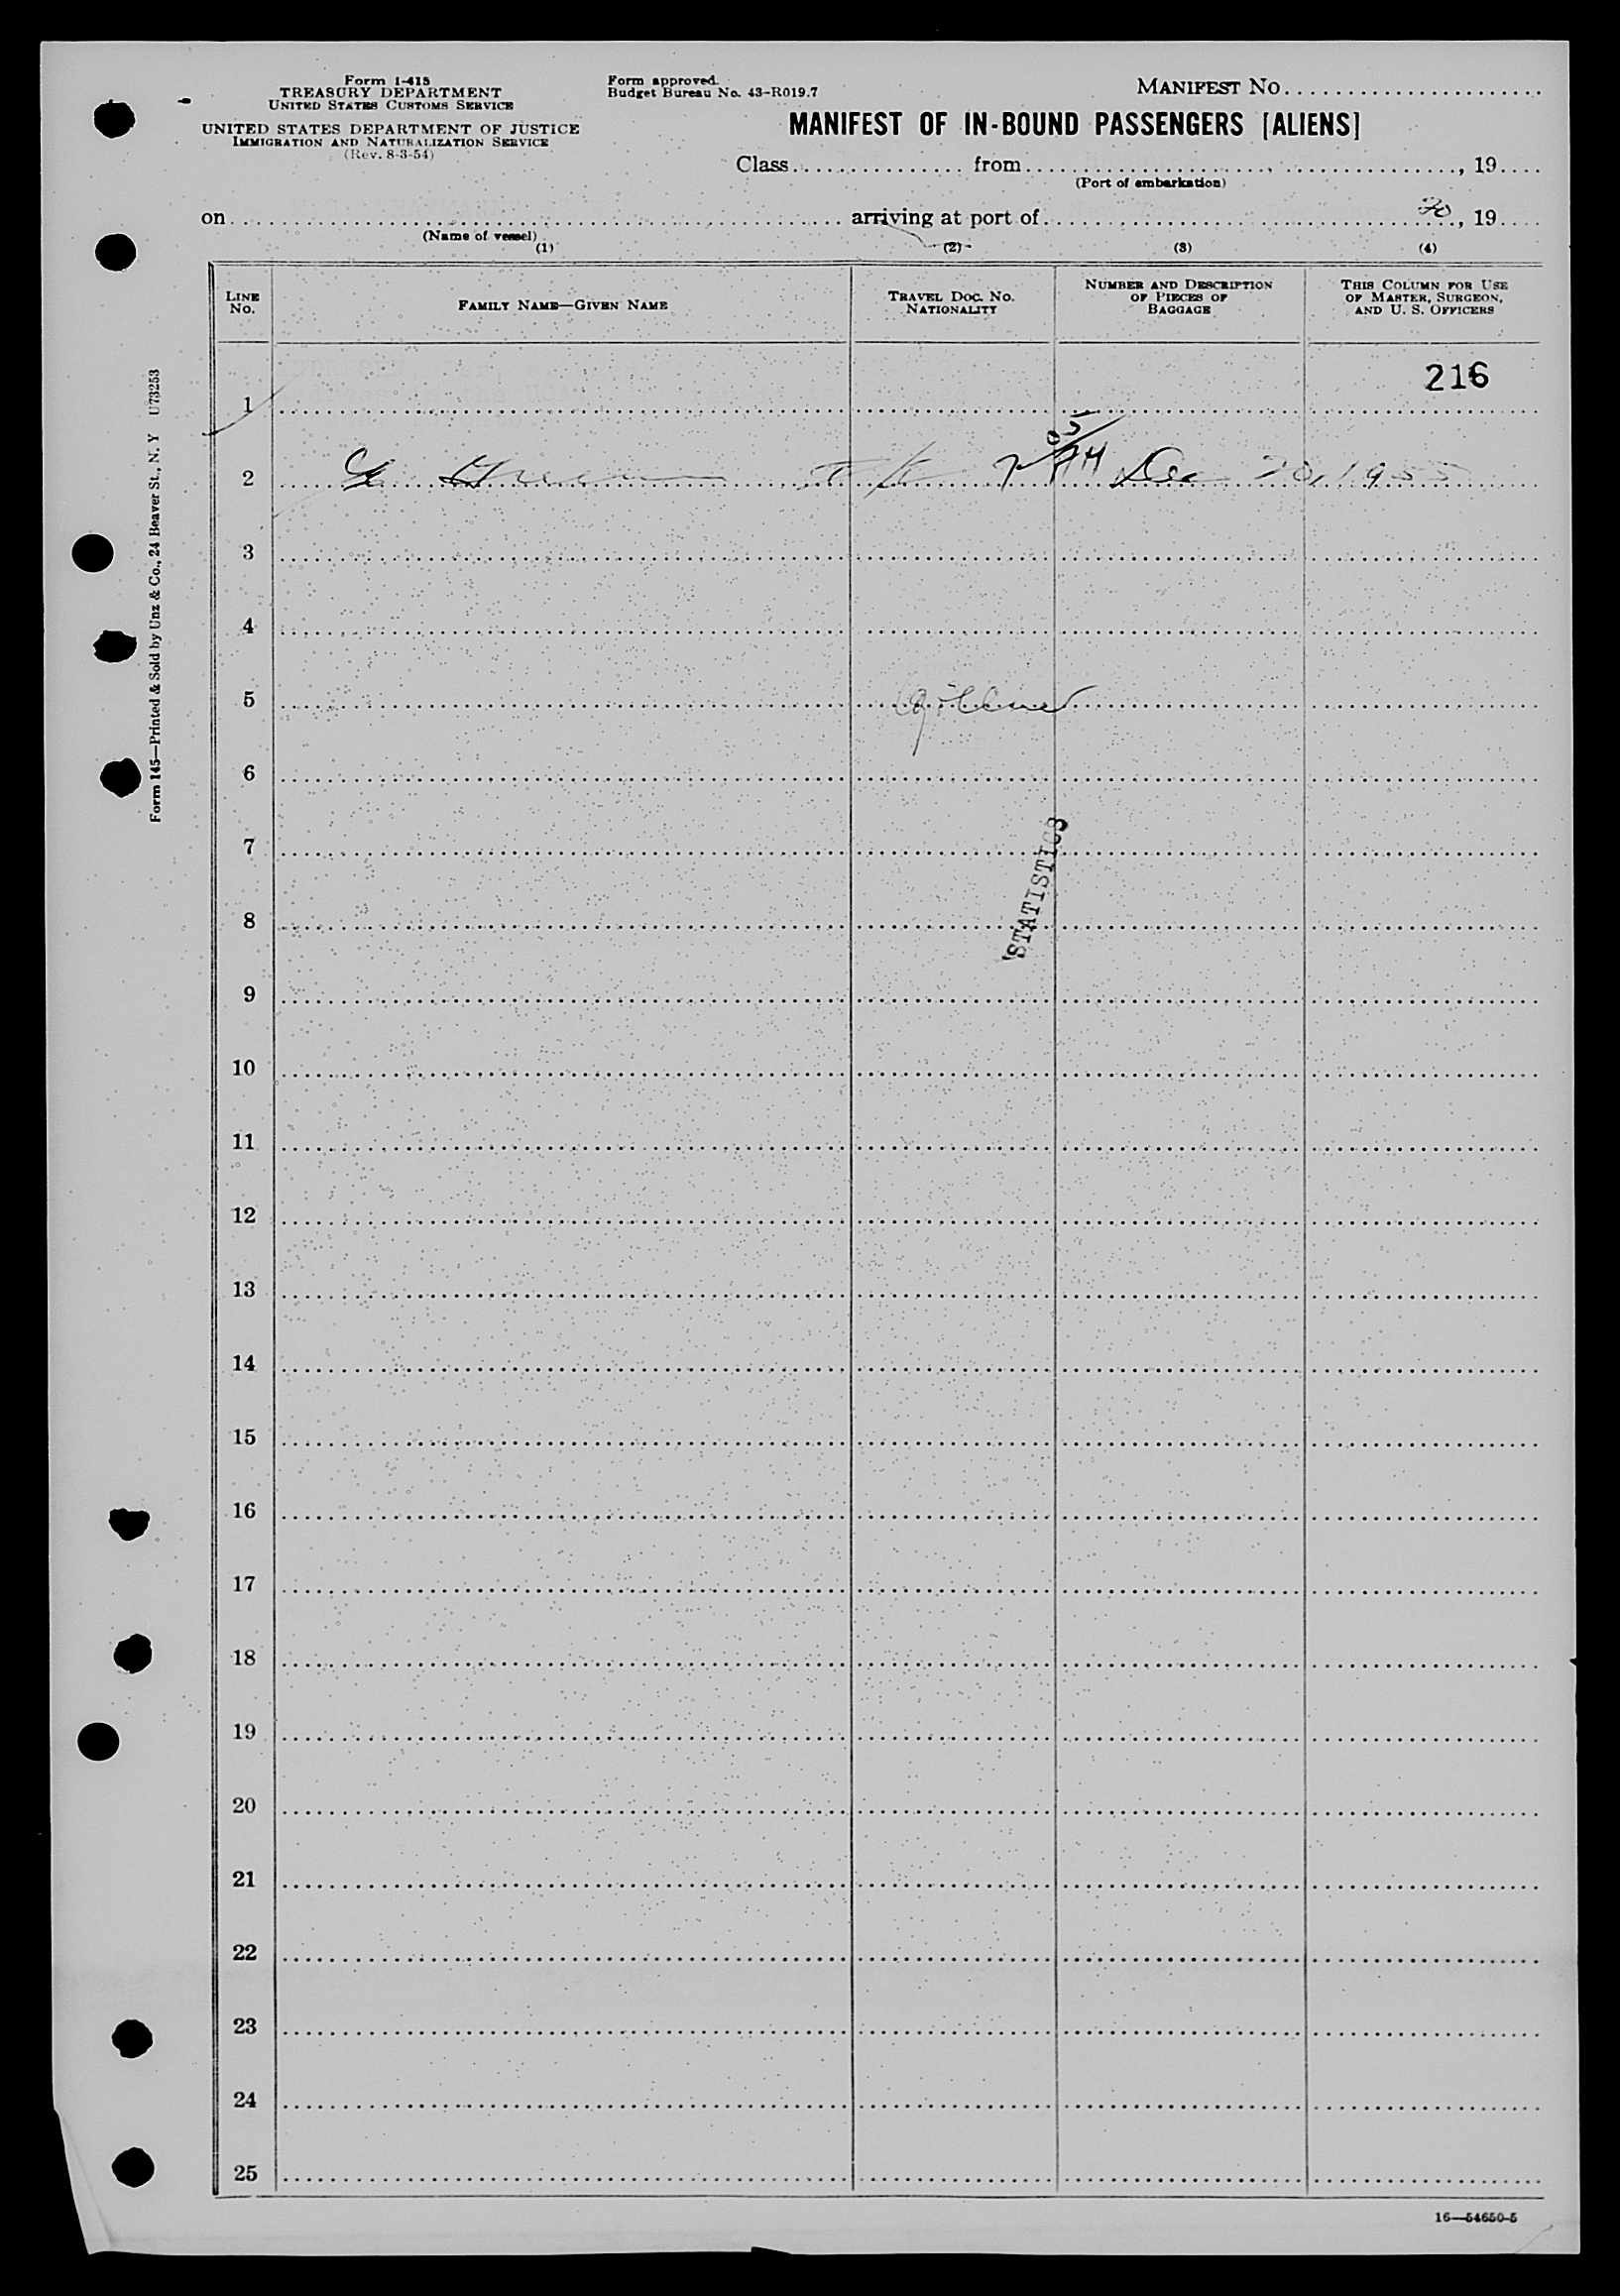 Form I-415
TREASURY DEPARTMENT
UNITED STATES CUSTOMS SERVICE
UNITED STATES DEPARTMENT OF JUSTICE
IMMIGRATION AND NATURALIZATION SERVICE
(Rev. 8-3-54)
Form approved.
Budget Bureau No. 43-R019.7
MANIFEST NO.
MANIFEST OF IN-BOUND PASSENGERS [ALIENS]
Class from , 19
(Port of embarkation)
on arriving at port of 20, 19
(Name of vessel)
(1) (2) (3) (4)
LINE NO.
FAMILY NAME—GIVEN NAME
TRAVEL DOC. NO. NATIONALITY
NUMBER AND DESCRIPTION OF PIECES OF BAGGAGE
THIS COLUMN FOR USE OF MASTER, SURGEON, AND U. S. OFFICERS
216
1
2 Dec 20, 1955
3
4
5
6
7
STATISTICS
8
9
10
11
12
13
14
15
16
17
18
19
20
21
22
23
24
25
16—54650-5
Form 145—Printed & Sold by Unz & Co., 24 Beaver St., N. Y U73253